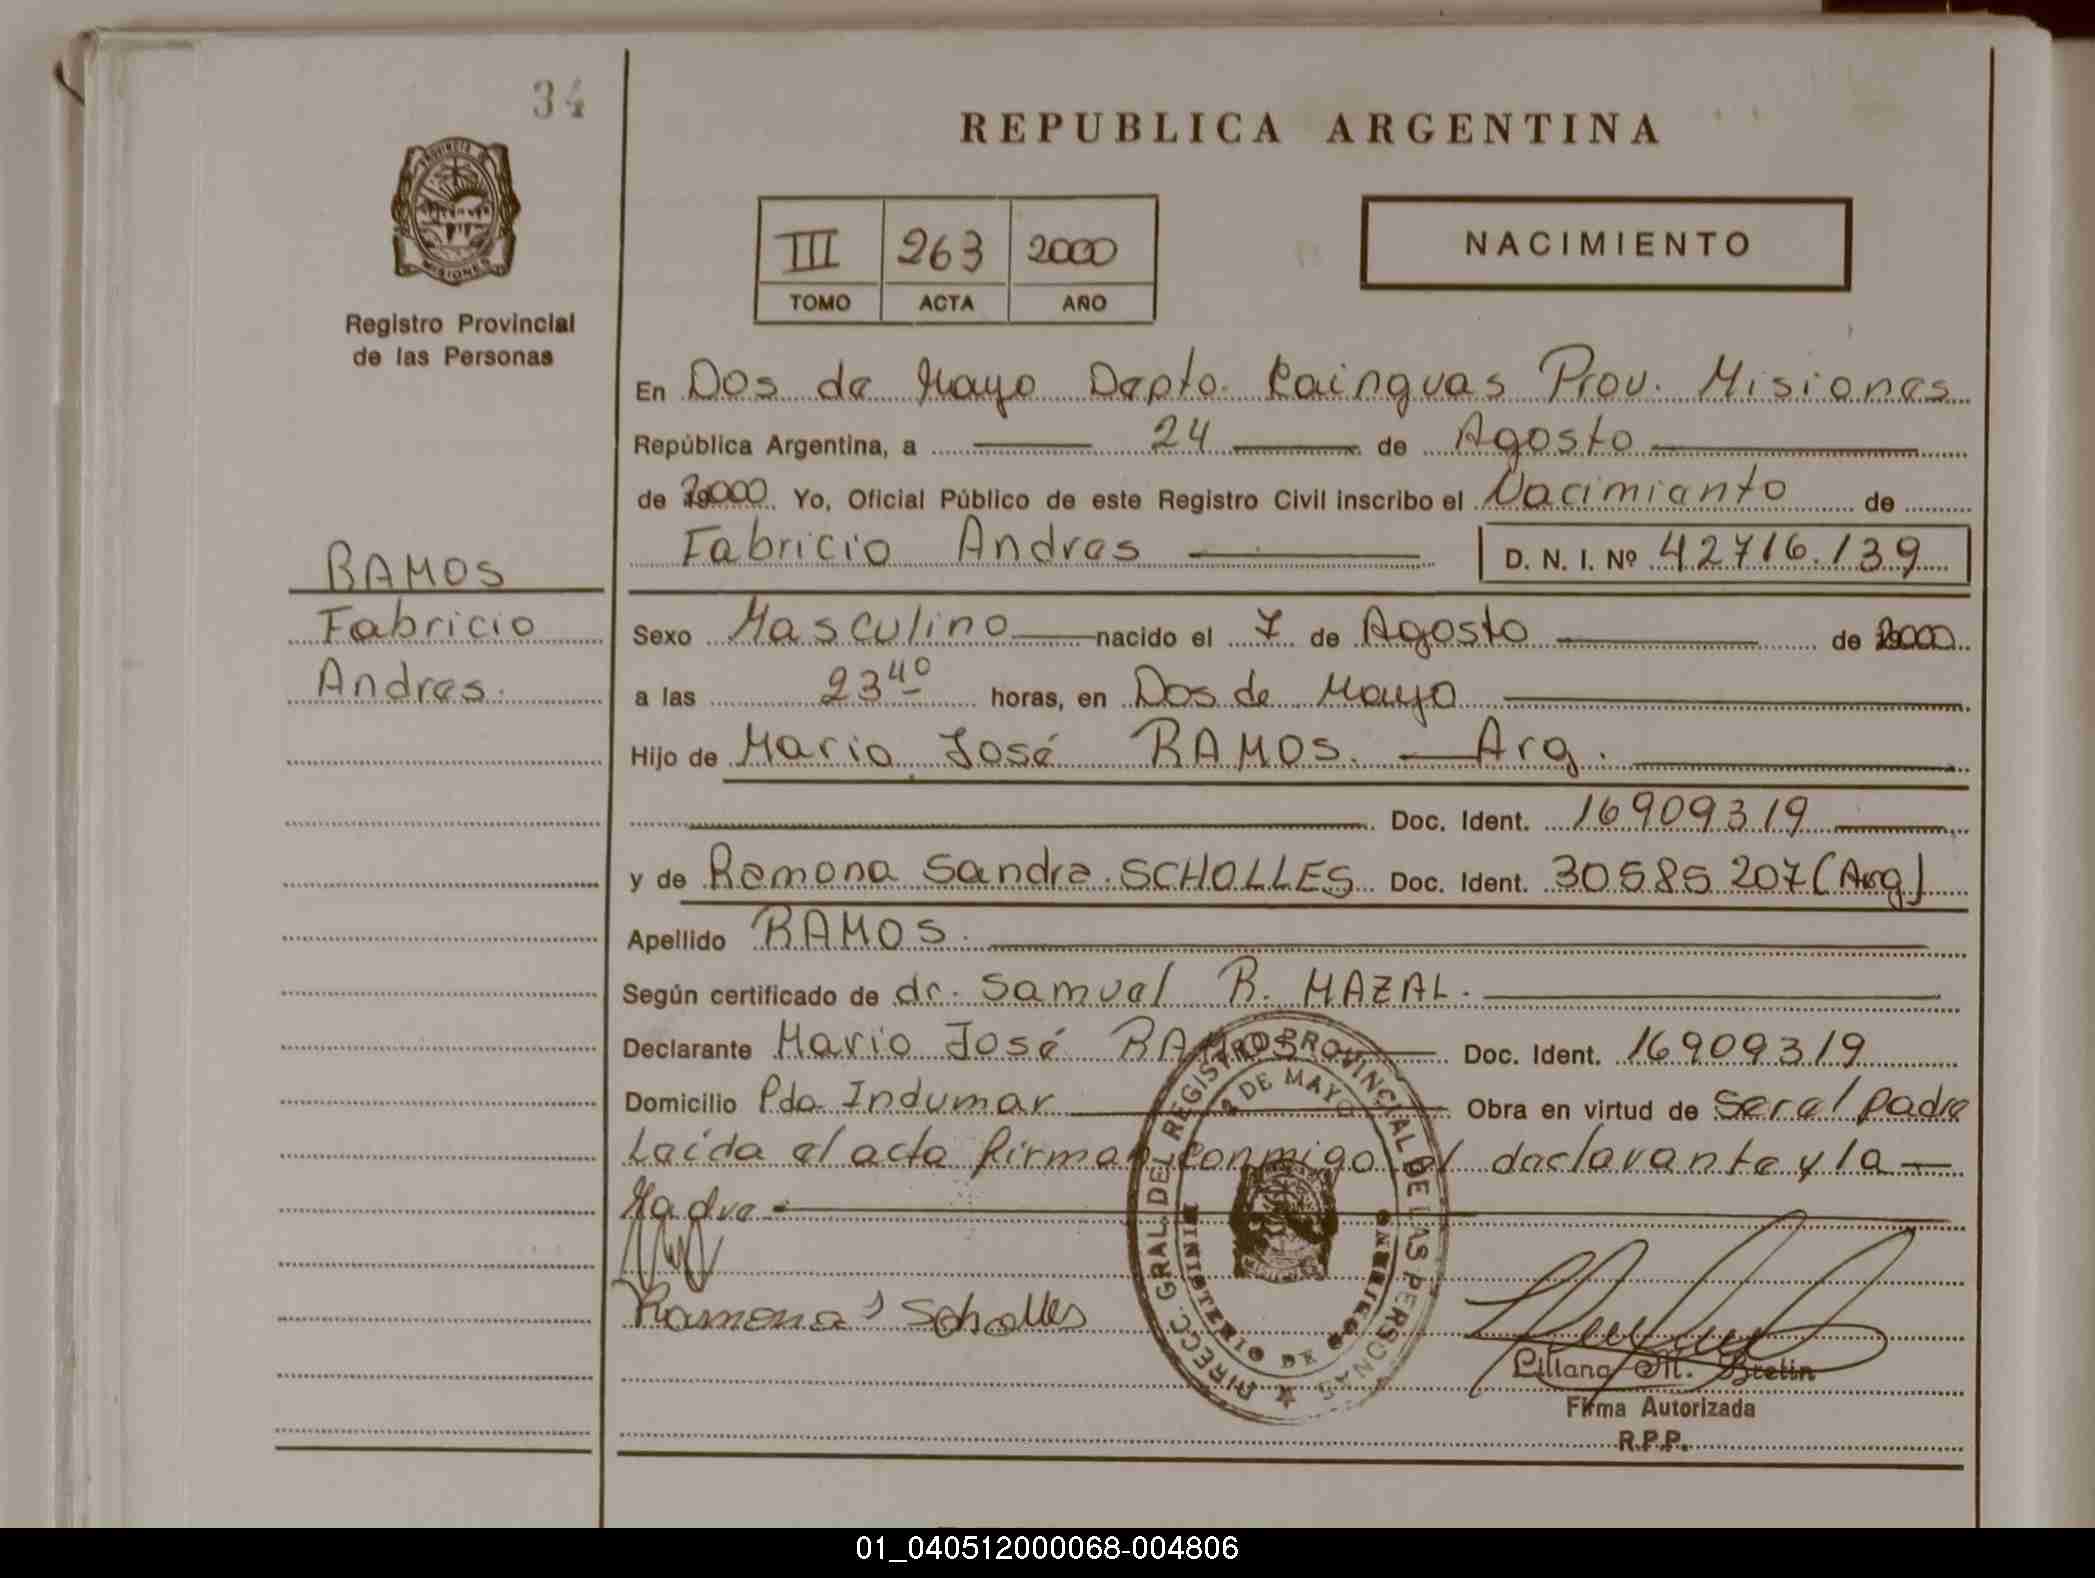 34
PROVINCIA DE
MISIONES
Registro Provincial
de las Personas
REPUBLICA ARGENTINA
III 263 2000
TOMO ACTA AÑO
NACIMIENTO
En Dos de Mayo Depto. Cainguas Prov. Misiones
República Argentina, a 24 de Agosto
de 2000 Yo, Oficial Público de este Registro Civil inscribo el Nacimiento de
Fabricio Andres D. N. I. Nº 42716.139
RAMOS
Fabricio
Andres.
Sexo Masculino nacido el 7 de Agosto de 2000
a las 23 40 horas, en Dos de Mayo
Hijo de Mario José RAMOS. Arg.
Doc. Ident. 16909319
y de Ramona Sandra SCHOLLES Doc. Ident. 30585207 (Arg)
Apellido RAMOS.
Según certificado de dr. Samuel R. MAZAL.
Declarante Mario José RAMOS Doc. Ident. 16909319
Domicilio Pda Indumar Obra en virtud de Ser el padre
Leída el acta firman conmigo el declarante y la
Madre
Ramona S Scholles
DIRECC. GRAL. DEL REGISTRO PROVINCIAL DE LAS PERSONAS
2 DE MAYO
MINISTERIO DE GOBIERNO
Liliana M. Bretin
Firma Autorizada
R.P.P.
01_040512000068-004806